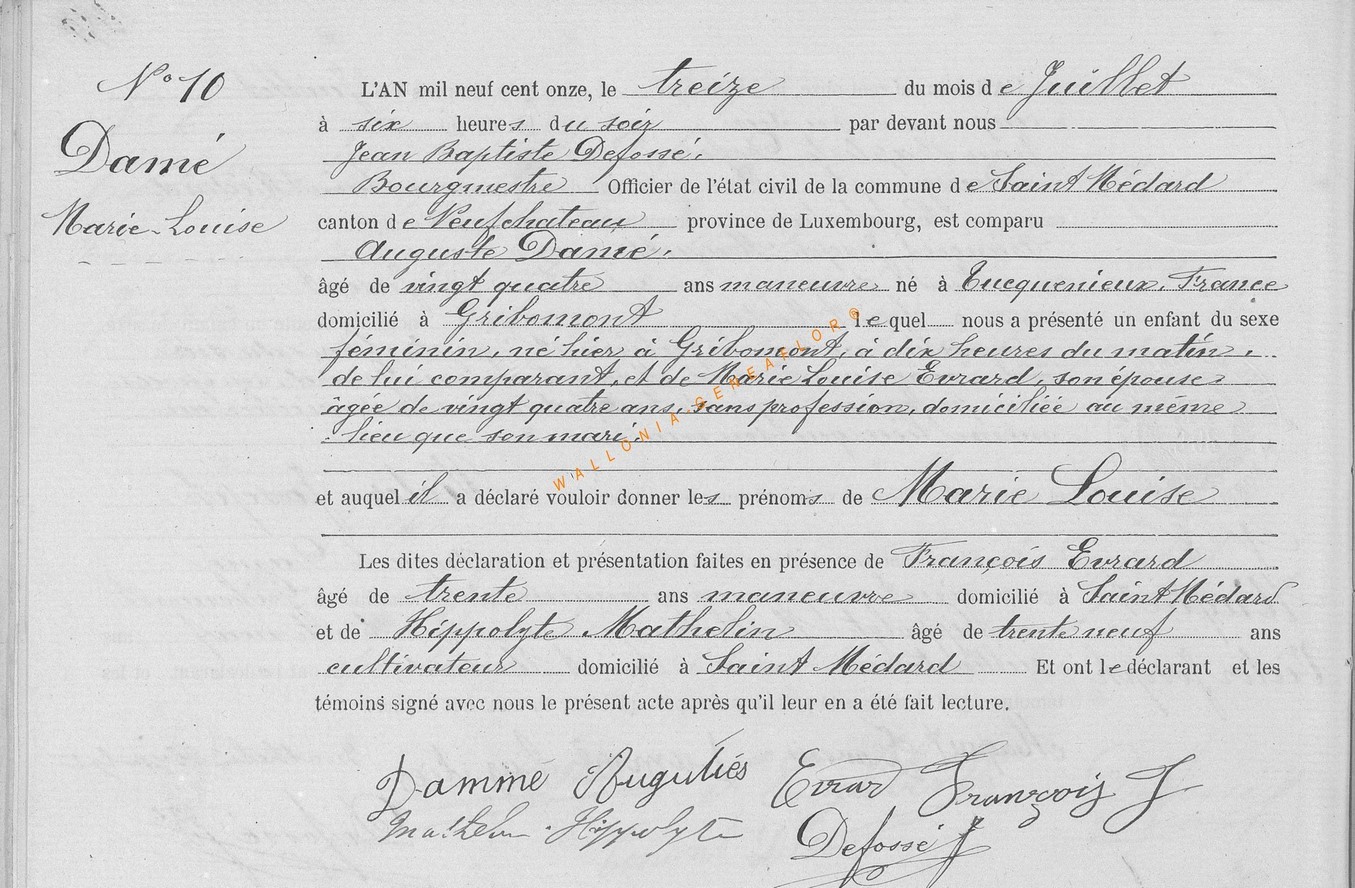 N° 10
Damé
Marie-Louise
L'AN mil neuf cent onze, le treize du mois de Juillet
à six heures du soir par devant nous
Jean Baptiste Defossé,
Bourgmestre Officier de l'état civil de la commune de Saint Médard
canton de Neufchateau province de Luxembourg, est comparu
Auguste Damé,
âgé de vingt quatre ans manœuvre né à Tucquenieux, France
domicilié à Gribomont lequel nous a présenté un enfant du sexe
féminin, né hier à Gribomont, à dix heures du matin,
de lui comparant, et de Marie Louise Evrard, son épouse
âgée de vingt quatre ans, sans profession, domiciliée au même
lieu que son mari.
WALLONIA GENEAFLOR©
et auquel il a déclaré vouloir donner les prénoms de Marie Louise
Les dites déclaration et présentation faites en présence de François Evrard
âgé de trente ans manœuvre domicilié à Saint Médard
et de Hippolyte Mathelin âgé de trente neuf ans
cultivateur domicilié à Saint Médard Et ont le déclarant et les
témoins signé avec nous le présent acte après qu'il leur en a été fait lecture.
Dammé Evrar François J.
Hippolyte Defossé J